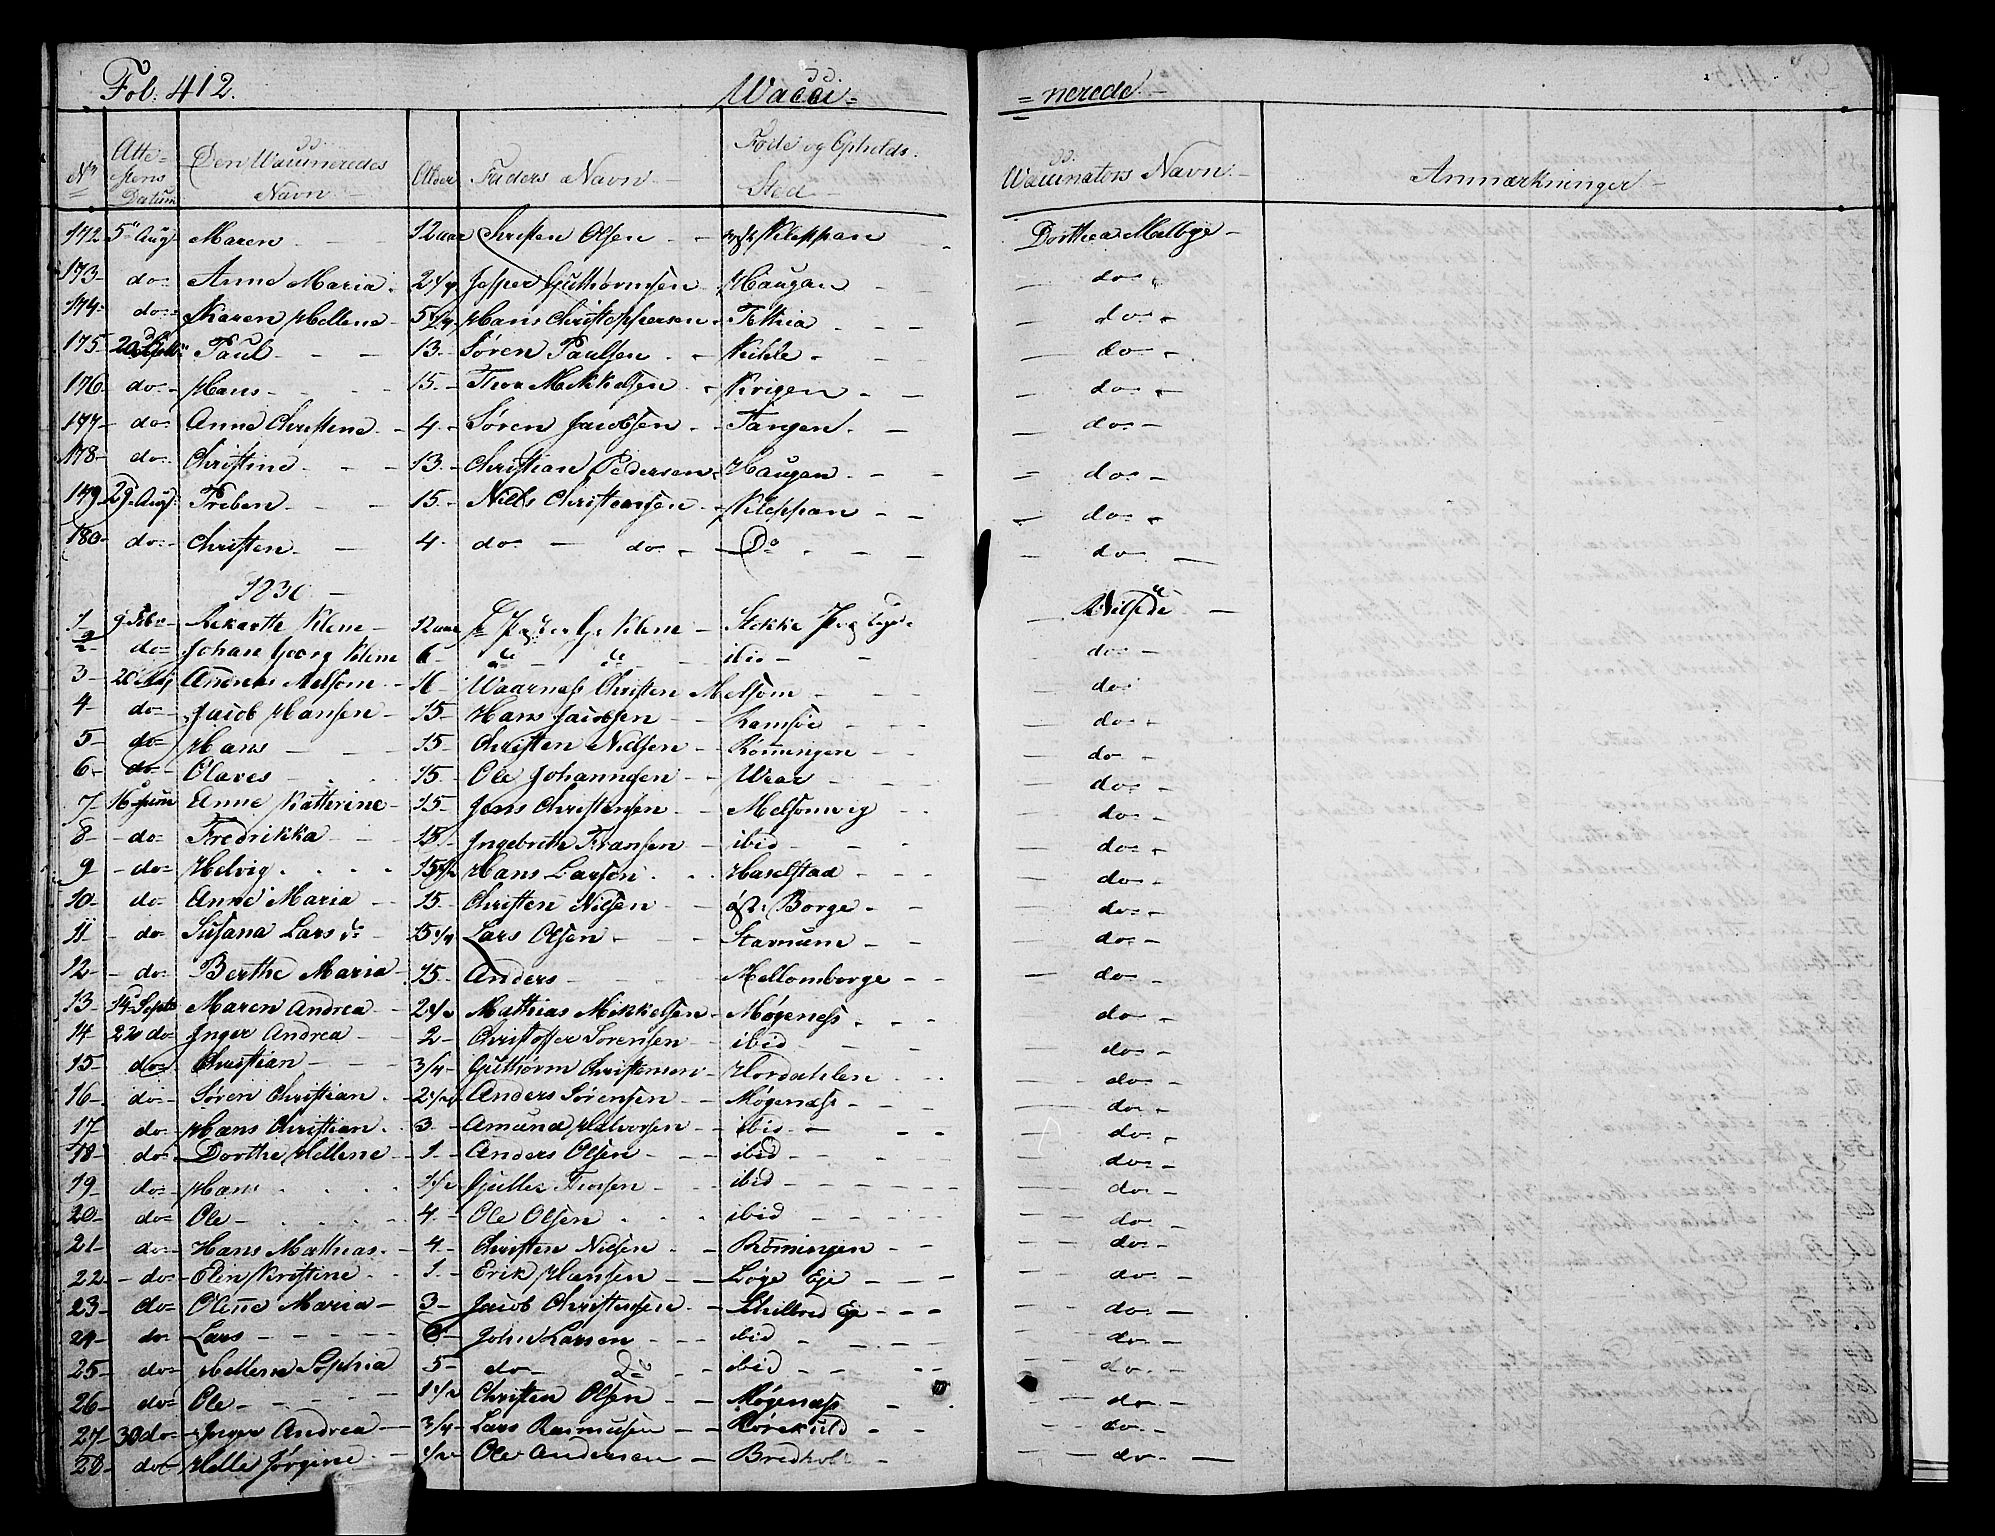 Fol. 412. Wacci= =nerede.
No Atte= stens Datum Den Waccineredes Navn Alder Faders Navn Føde og Opholds Sted Waccinators Navn Anmærkninger
172 5 Aug Maren 12 aar Christen Olsen Kleppan Dorthea Melbye
173 do Anne Maria 2 1/4 Jesper Guthormsen Haugan do
174 do Karen Hellene 5 Hans Christophersen do
175 20 Paul 13 Søren Paulsen Kihle do
176 do Hans 15 Thor Mikkelsen Krigen do
177 do Anne Christine 4 Søren Jacobsen Tangen do
178 do Christine 13 Christian Pedersen Haugan do
179 29 Aug Preben 15 Niels Christensen Kleppan do
180 do Christen 4 do do Do do
1 9 Febr Klene 12 aar Klene Stokke
2 do Johan Georg Klene 6 do do ibid do
3 20 Maj Andreas Melsom 16 Waarness Christen Melsom do
4 do Jacob Hansen 15 Hans Jacobsen Lamsøe do
5 do Hans 15 Christen Nielsen Rønningen do
6 do Olaves 15 Ole Johannesen Wear do
7 16 Juni Anne Kathrine 15 Jens Christensen Melsomvig do
8 do Fredrikka 15 Ingebreth Fransen ibid do
9 do Helvig 15 1/2 Hans Larsen Haselstad do
10 do Anne Maria 15 Christen Nilsen øst: Borge do
11 do Susana Lars d: 15 1/4 Lars Olsen Starnum do
12 do Berthe Maria 15 Anders Mellomborge do
13 14 Septb Maren Andrea 2 1/2 Mathias Mikkelsen Møgeness do
14 22 do Inger Andrea 2 Christoffer Sørensen ibid do
15 do Christian 3/4 Guthorm Christensen Hordahlen do
16 do Søren Christian 2 1/2 Anders Sørensen Møgenæs do
17 do Hans Christian 3 Amund Halvorsen ibid do
18 do Dorthe Hellene 1 Anders Olsen ibid do
19 do Hans 1/2 Gulles Thorsen ibid do
20 do Ole 4 Ole Olsen ibid do
21 do Hans Mathias 4 Christen Nielsen Rønningen do
22 do Elen Kristine 1 Erik Hansen Løge Eje do
23 do Olene Maria 3 Jacob Christensen Eje do
24 do Lars John Larsen ibid do
25 do Hellene Sophia 5 do do ibid do
26 do Ole 1 1/2 Christen Olsen Møgenæss do
27 30 do Inger Andrea 3/4 Lars Rasmusen Rørekuld do
28 do Helle Jørgine 1/2 Ole Andersen Bredholt do